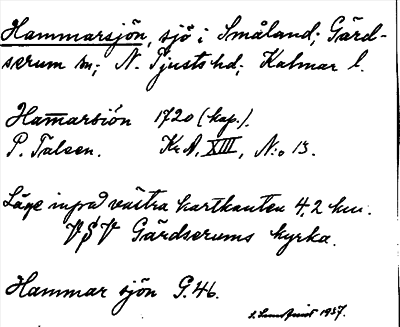 Hammarsjön, sjö i Småland; Gärd-
serum sn; N. Tjusts hd; Kalmar l.
Ham̅arsiön 1720 (kop.).
P. Talsen. Kr.A. XIII, N:o 13.
Läge invid västra kartkanten 4,2 km.
VSV Gärdserums kyrka.
Hammar sjön G.46.
1937.